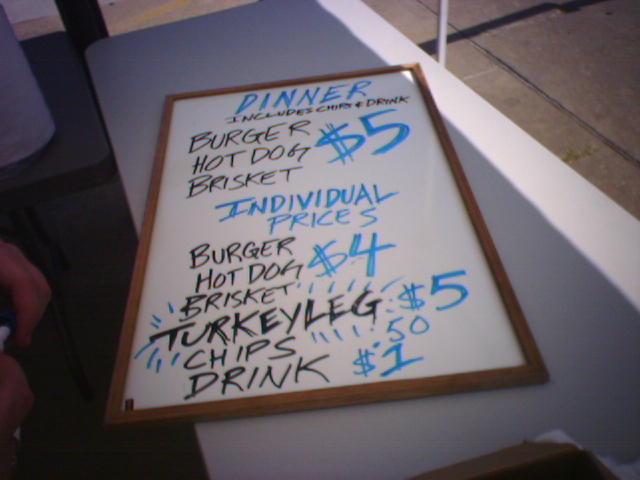 DINNER
INCLUDES CHIPS & DRINK
BURGER
HOT DOG $5
BRISKET
INDIVIDUAL
PRICES
BURGER
HOT DOG $4
BRISKET
TURKEY LEG $5
CHIPS 50
DRINK $1